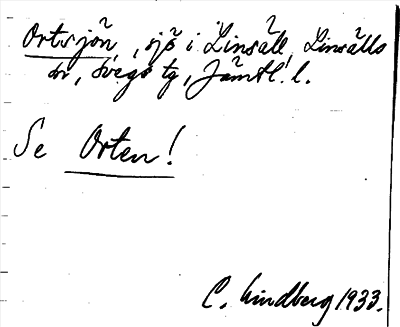 Ortsjön, sjö i Linsäll, Linsälls
sn, Svegs tg, Jämtl. l.
Se Orten!
C. Lindberg 1933.